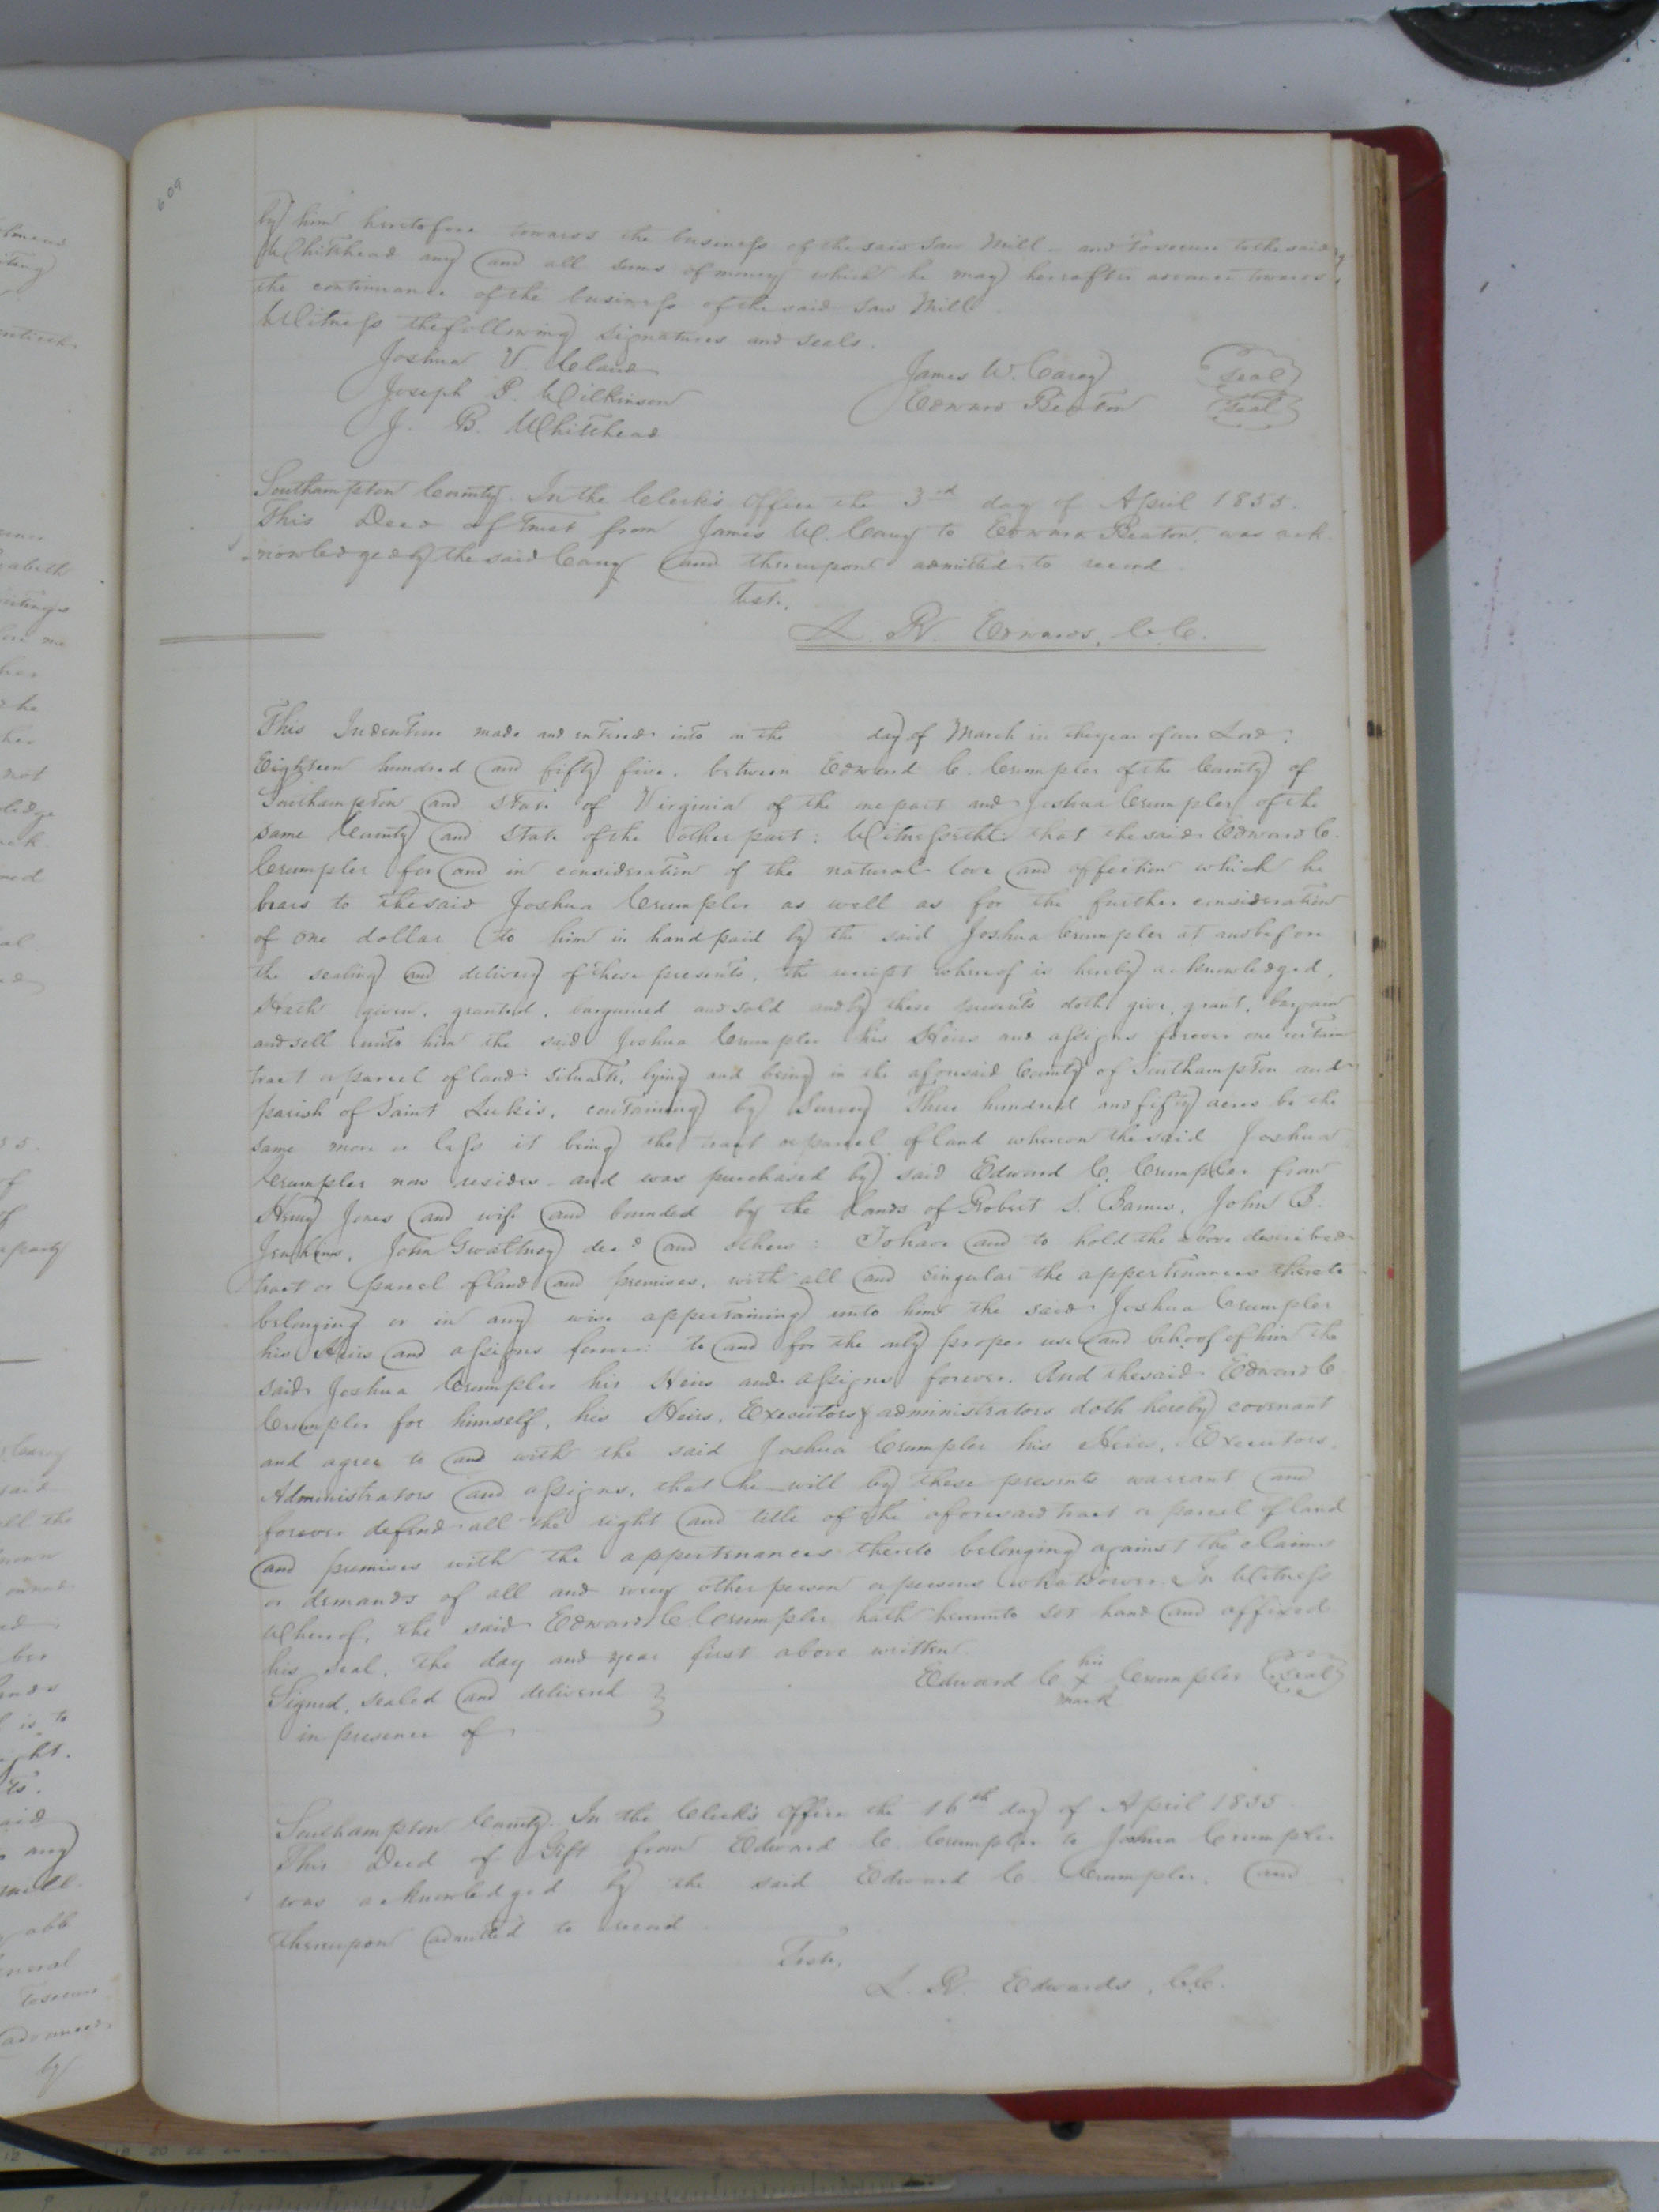 609
by him heretofore towards the business of the said Saw Mill – and to secure to the said
Whitehead any and all sums of money which he may hereafter advance towards
the continuance of the business of the said Saw Mill.
Witness the following signatures and seals.
Joshua V. Uland James W. Carey Seal
Joseph P. Wilkinson Edward Beaton Seal
J. B. Whitehead
Southampton County. In the Clerk's Office the 3rd day of April 1855.
This Deed of Trust from James W. Carey to Edward Beaton, was ack-
nowledged by the said Carey and thereupon admitted to record
Test.
L. R. Edwards, C.C.
This Indenture made and entered into on the day of March in the year of our Lord,
Eighteen hundred and fifty five, between Edward C. Crumpler of the County of
Southampton and State of Virginia of the one part and Joshua Crumpler of the
same County and State of the other part: Witnesseth that the said Edward C.
Crumpler for and in consideration of the natural love and affection which he
bears to the said Joshua Crumpler as well as for the further consideration
of one dollar to him in hand paid by the said Joshua Crumpler at and before
the sealing and delivery of these presents, the receipt whereof is hereby acknowledged,
Hath given, granted, bargained and sold and by these presents doth give, grant, bargain
and sell unto him the said Joshua Crumpler his Heirs and assigns forever one certain
tract or parcel of land situate, lying and being in the aforesaid County of Southampton and
parish of Saint Lukes, containing by Survey Three hundred and fifty acres be the
same more or less it being the tract or parcel of land whereon the said Joshua
Crumpler now resides – and was purchased by said Edward C. Crumpler from
Henry Jones and wife and bounded by the lands of Robert S. Barnes, John B.
Jenkins, John Gwaltney decd and others: To have and to hold the above described
tract or parcel of land and premises, with all and singular the appertenances thereto
belonging or in any wise appertaining unto him the said Joshua Crumpler
his Heirs and assigns forever: to and for the only proper use and behoof of him the
said Joshua Crumpler his Heirs and assigns forever. And the said Edward C
Crumpler for himself, his Heirs, Executors & administrators doth hereby covenant
and agree to and with the said Joshua Crumpler his Heirs, Executors,
Administrators and assigns, that he will by these presents warrant and
forever defend all the right and title of the aforesaid tract or parcel of land
and premises with the appertenances thereto belonging against the claims
or demands of all and every other person or persons whatsoever. In Witness
Whereof, the said Edward C. Crumpler hath hereunto set hand and affixed
his seal, the day and year first above written.
Signed, sealed and delivered Edward C his x mark Crumpler Seal
in presence of
Southampton County. In the Clerk's Office the 16th day of April 1855.
This Deed of Gift from Edward C. Crumpler to Joshua Crumpler
was acknowledged by the said Edward C. Crumpler, and
thereupon admitted to record.
Test.
L. R. Edwards, C.C.